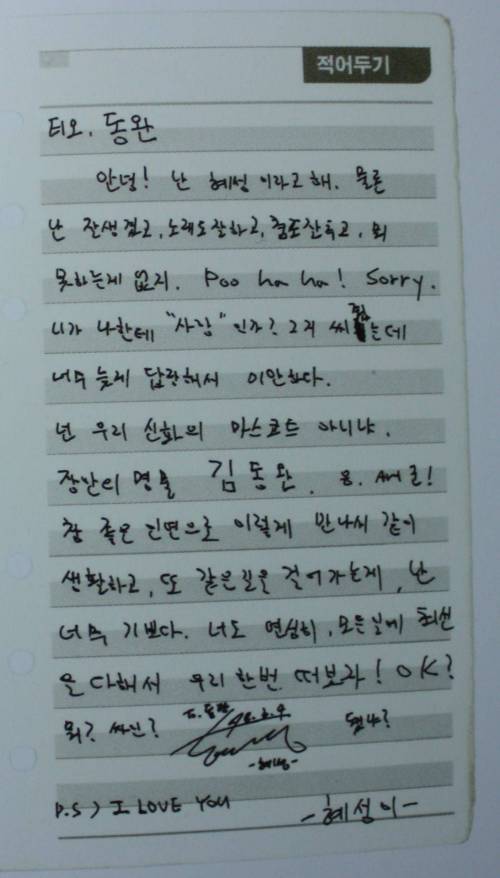 적어두기
티오. 동완
안녕! 난 혜성이라고해. 물론
난 잘생겼고, 노래도잘하고, 춤도잘추고, 뭐
못하는게 없지. Poo ha ha! Sorry.
니가 나한테 "사랑" 인가? 그거 써줬는데
너무 늦게 답장해서 미안하다.
넌 우리 신화의 마스코트 아니냐.
장난의 명물 김동완.
참 좋은 인연으로 이렇게 만나서 같이
생활하고, 또 같은길을 걸어가는게, 난
너무 기쁘다. 너도 열심히, 모든일에 최선
을 다해서 우리 한번 떠보자! OK?
뭐? 싸인? To. 동완 됐냐?
-혜성-
P.S > I LOVE YOU -혜성이-